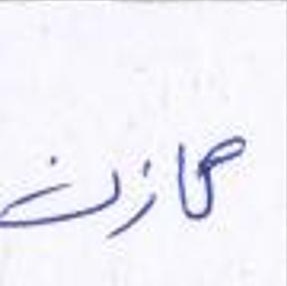 مازن